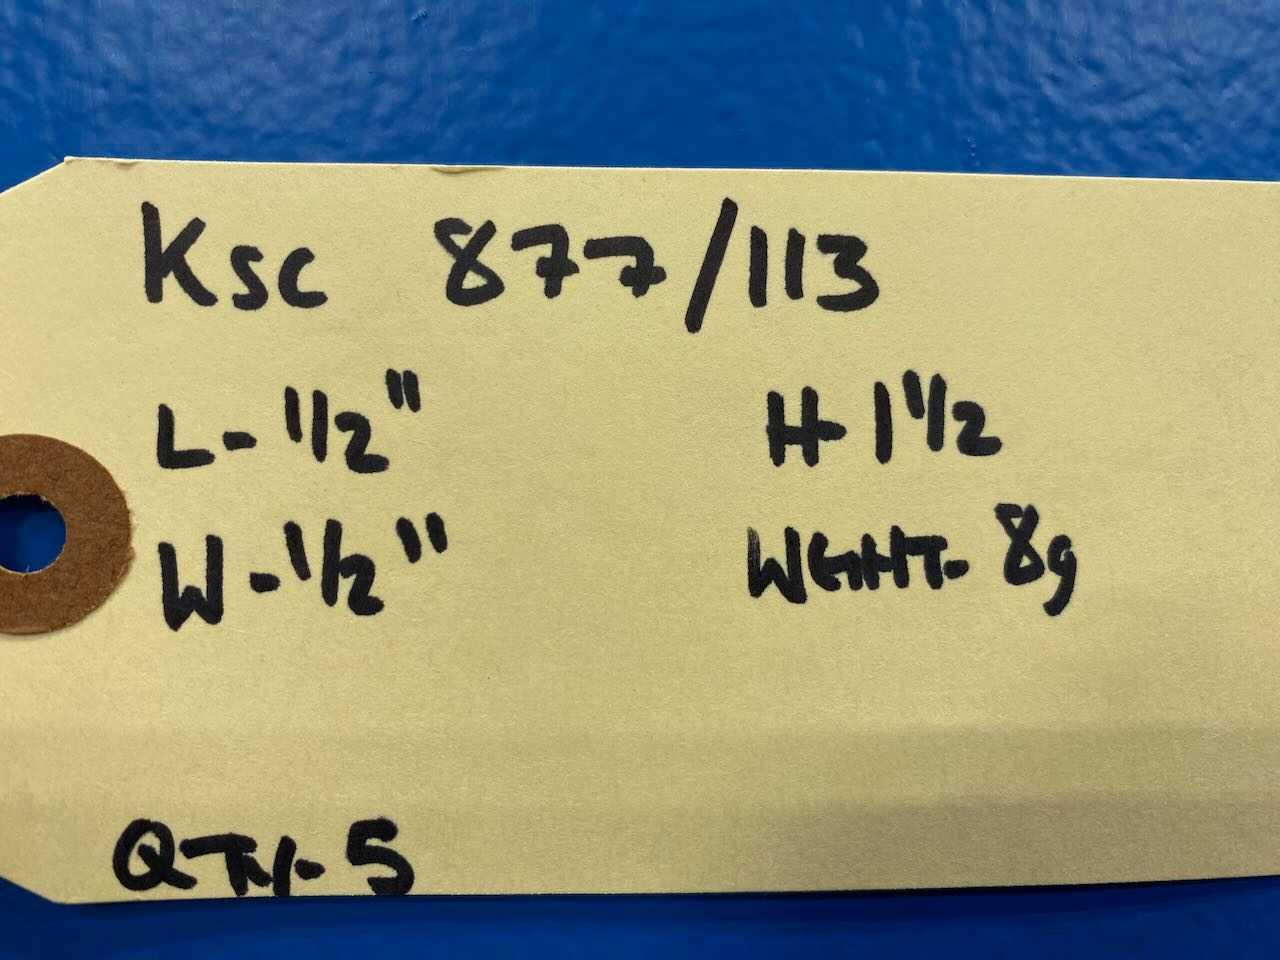 KSC 877/113
L- 1/2" H- 1 1/2
W- 1/2" WEIGHT- 8g
QTY- 5